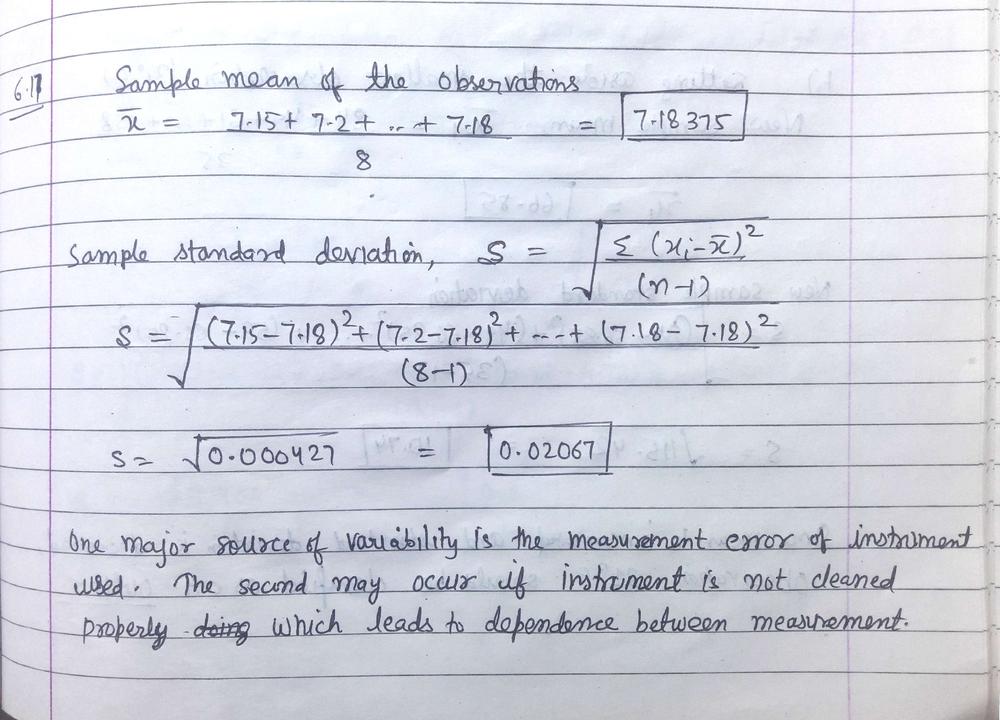 6.17 Sample mean of the observations
x̄ = 7.15 + 7.2 + .. + 7.18 / 8 = 7.18375
Sample standard deviation, S = √(Σ (xᵢ - x̄)² / (n-1))
S = √((7.15-7.18)² + (7.2-7.18)² + ---- + (7.18 - 7.18)² / (8-1))
S = √0.000427 = 0.02067
One major source of variability is the measurement error of instrument
used. The second may occur if instrument is not cleaned
properly doing which leads to dependence between measurement.